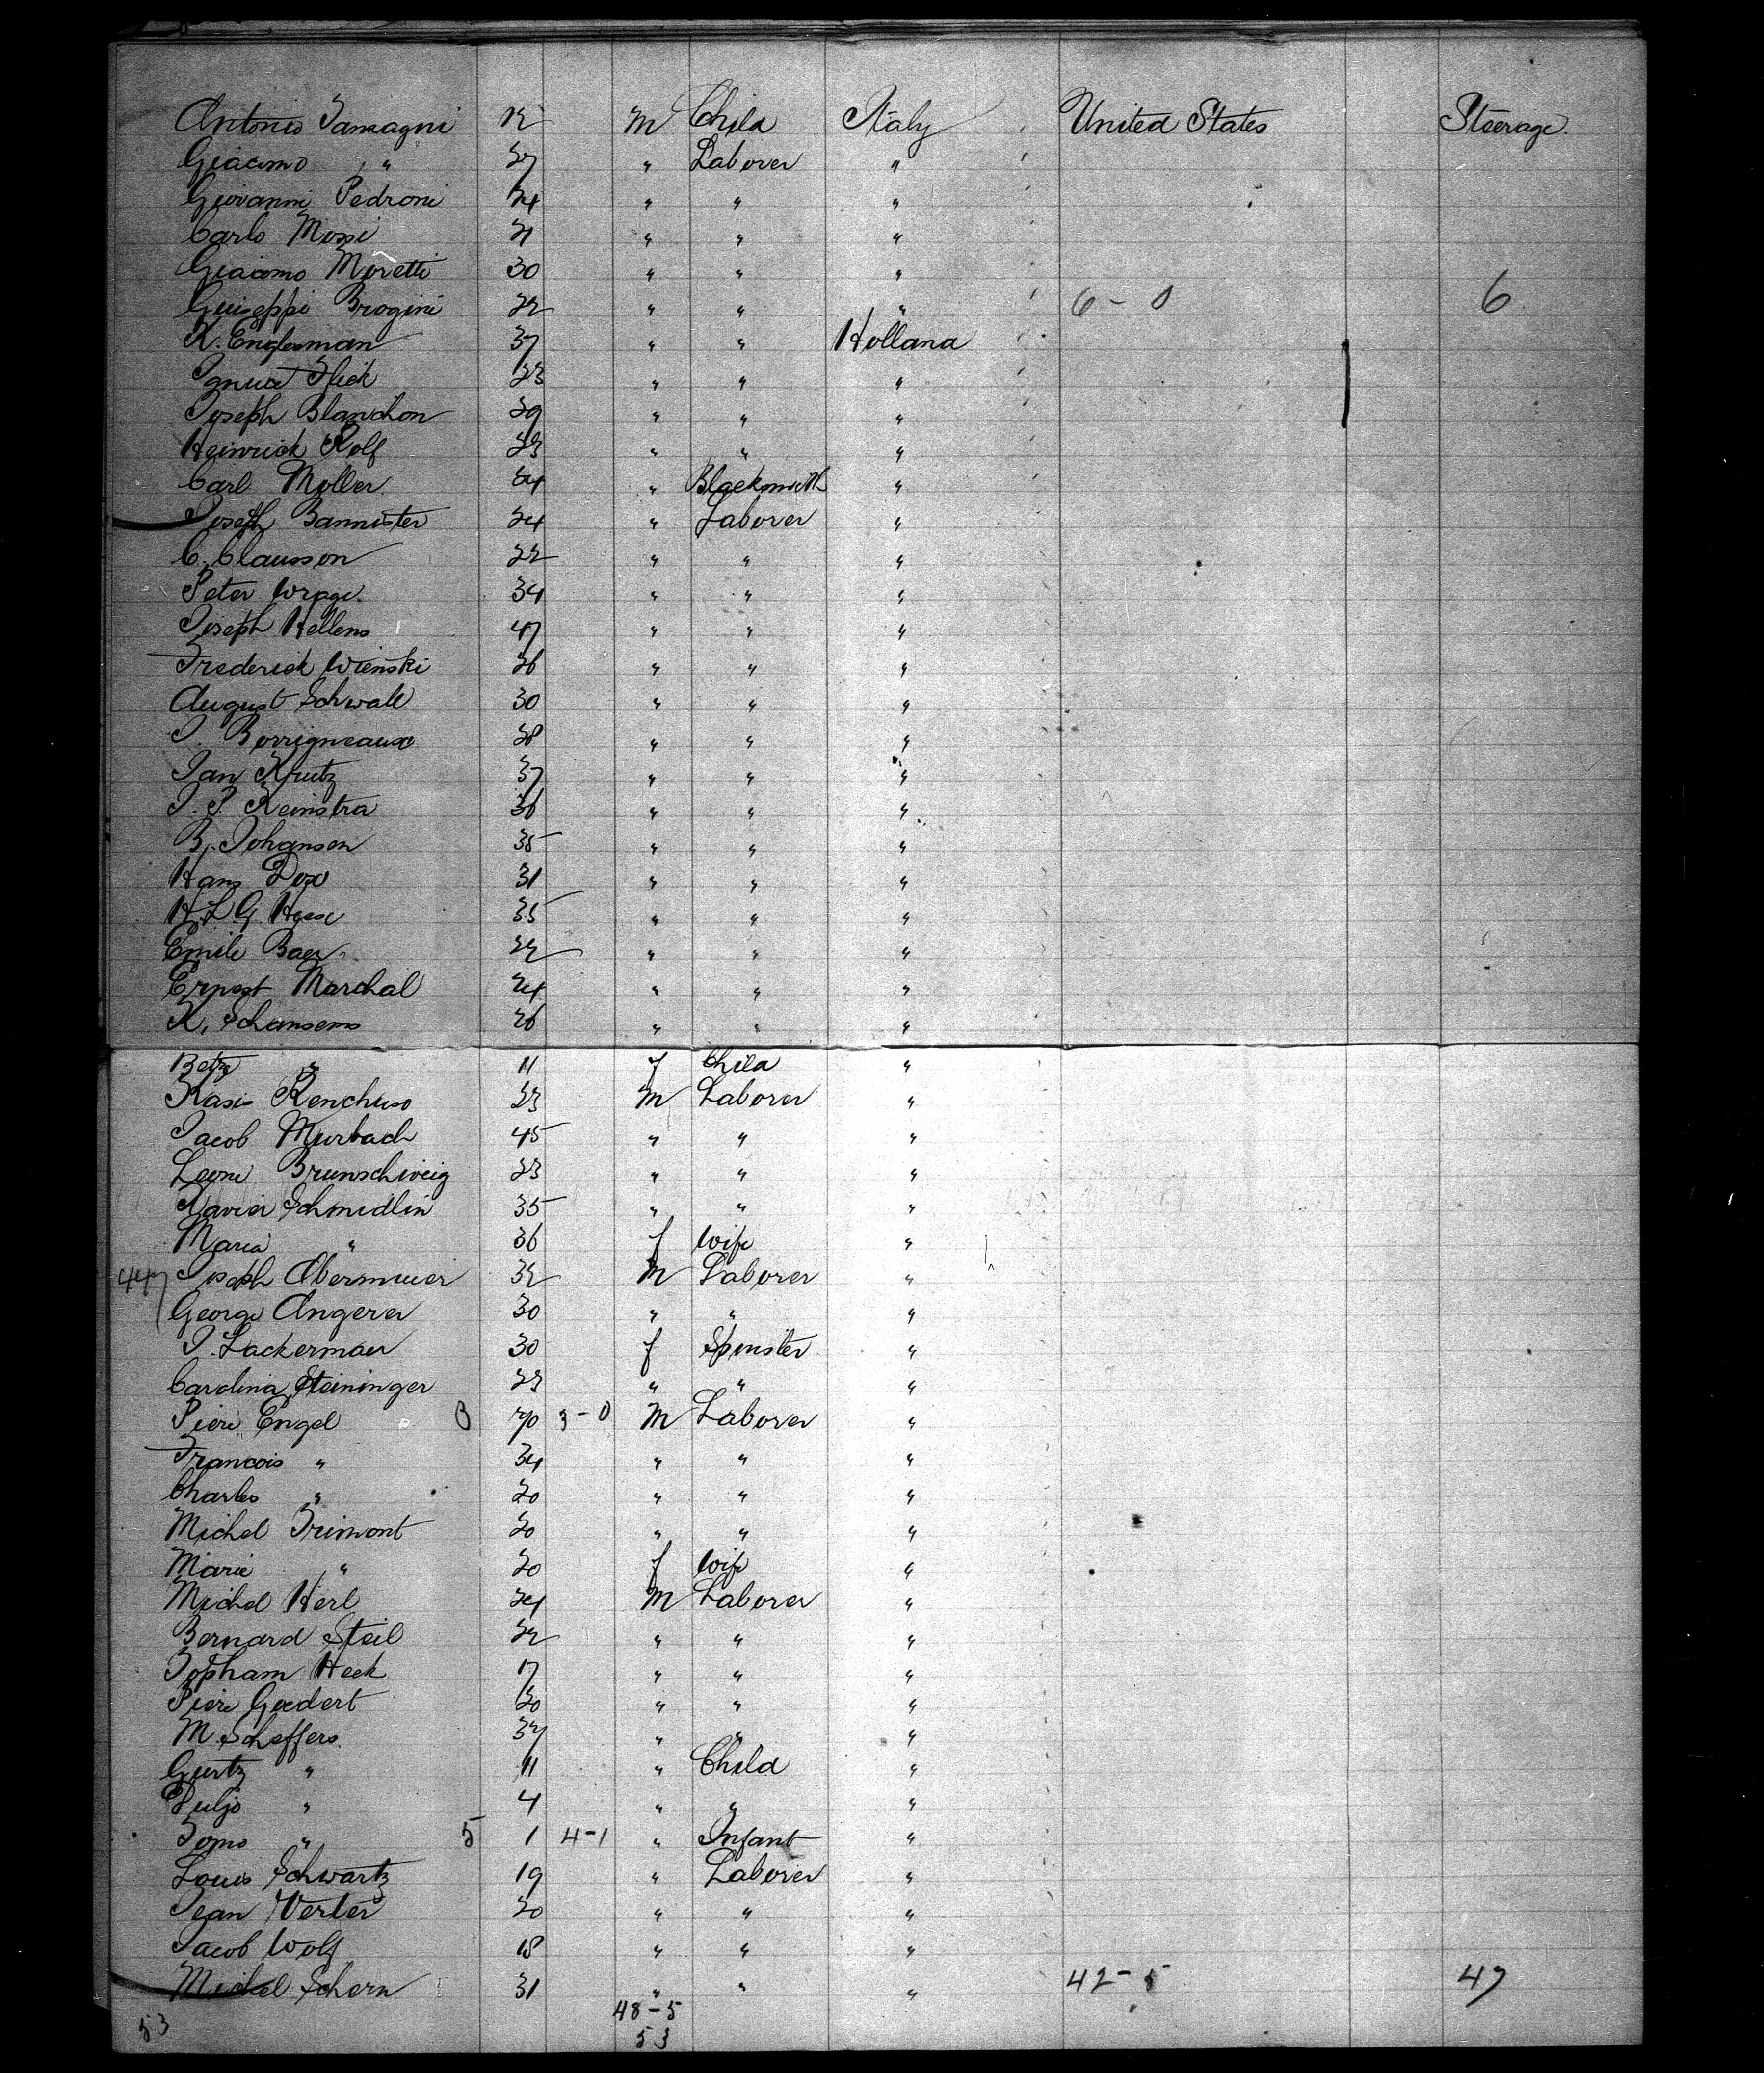 Antonio Tamagni 12 M Child Italy United States Steerage
Giacomo " 27 " Laborer "
Giovanni Pedroni 24 " " "
Carlo Mossi 21 " " "
Giacomo Moretti 30 " " "
Guiseppi Brogini 22 " " " 6-0 6
K. Engleman 37 " " Holland
Flick 23 " " "
Joseph Blanchon 29 " " "
Heinrich Rolf 23 " " "
Carl Moller 24 " Blacksmith "
Joseph Bannister 24 " Laborer "
C. Clausson 22 " " "
Peter Wrage 34 " " "
Joseph Hellens 47 " " "
Frederick Wienski 26 " " "
August Schwall 30 " " "
J. Borrigneaux 28 " " "
Jan 37 " " "
J. P. Reinstra 36 " " "
B. Johansen 35 " " "
Hans 31 " " "
H. L. G. 35 " " "
Emile Baer 22 " " "
Ernest Marchal 24 " " "
K. Schansems 26 " " "
Betzy " 11 f Child "
Renchuso 23 M Laborer "
Jacob Murbach 45 " " "
Leoni Brunschweig 23 " " "
Xavier Schmidlin 35 " " "
Maria " 36 f Wife "
447 Joseph Obermeier 32 M Laborer "
George Angerer 30 " " "
J. Lackerman 30 f Spinster "
Carolina Steininger 23 " " "
Piere Engel 3 70 3-0 M Laborer "
Francois " 34 " " "
Charles " 20 " " "
Michel Trimont 20 " " "
Marie " 20 f Wife "
Michel Herl 24 M Laborer "
Bernard Steil 22 " " "
Topham Heck 17 " " "
Piere Goedert 20 " " "
M. Scheffers 37 " " "
Gurtz " 11 " Child "
Duljo " 4 " " "
Tomo " 5 1 4-1 " Infant "
Louis Schwartz 19 " Laborer "
Jean Verter 20 " " "
Jacob Wolf 18 " " "
Michel Schern 31 " " " 42-5 47
48-5
53 53